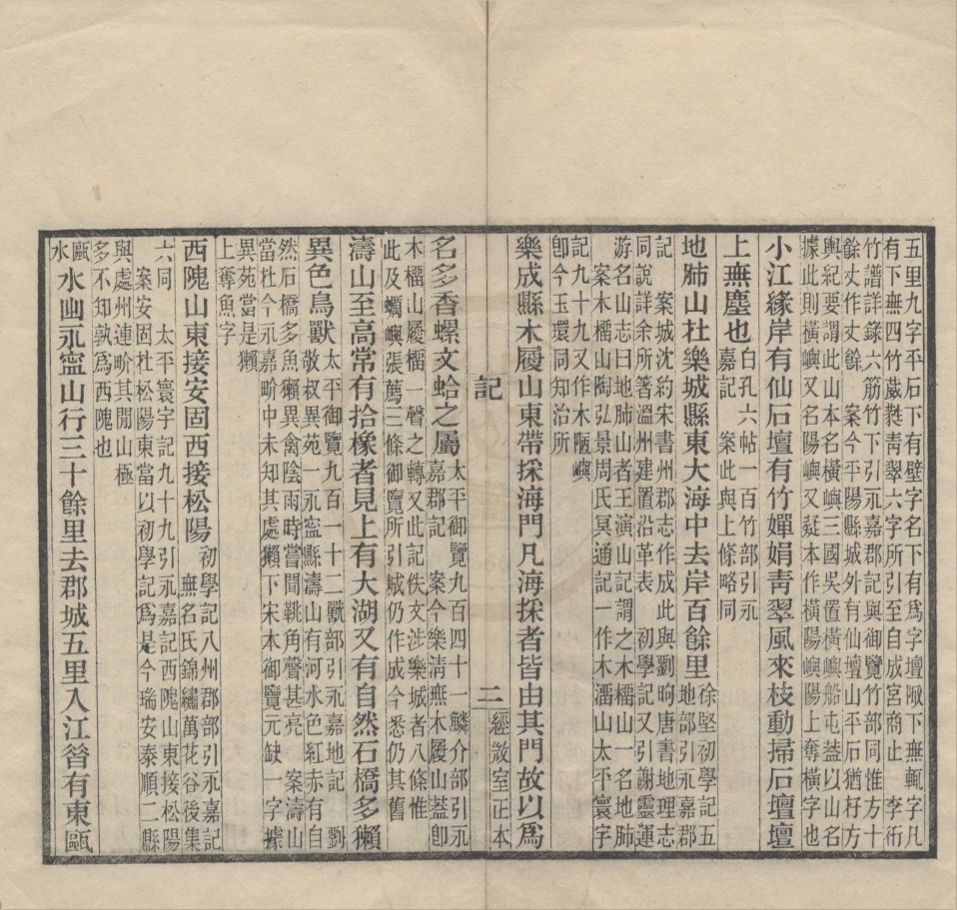 五里九字平石下有壁字名下有爲字壇陬下無輒字凡
有下無四竹葳蕤靑翠六字所引至自成宮商止　李衎
竹譜詳錄六筋竹下引永嘉郡記與御覽竹部同惟方十
餘丈作丈餘　案今平陽縣城外有仙壇山平石猶杍方
輿紀要謂此山本名橫嶼三國吳置橫嶼船屯葢以山名
據此則橫嶼又名陽嶼又疑本作橫陽嶼陽上奪橫字也
小江緣岸有仙石壇有竹嬋娟靑翠風來枝動掃石壇壇
上無塵也
白孔六帖一百竹部引永
嘉記　案此與上條略同
地肺山杜樂城縣東大海中去岸百餘里
徐堅初學記五
地部引永嘉郡
記　案城沈約宋書州郡志作成此與劉昫唐書地理志
同說詳余所著溫州建置沿革表　初學記又引謝靈運
游名山志曰地肺山者王演山記謂之木樏山一名地肺
案木樏山陶弘景周氏冥通記一作木潘山太平寰宇
記九十九又作木陋嶼
卽今玉環同知治所
樂成縣木履山東帶採海門凡海採者皆由其門故以爲
記
二
經㣲室正本
名多香螺文蛤之屬
太平御覽九百四十一鱗介部引永
嘉郡記　案今樂淸無木履山葢卽
木樏山履樏一聲之轉又此記佚文涉樂城者八條惟
此及蠣嶼張薦三條御覽所引城仍作成今悉仍其舊
濤山至高常有拾橡者見上有大湖又有自然石橋多獺
異色鳥獸
太平御覽九百一十二獸部引永嘉地記　劉
敬叔異苑一永寧縣濤山有河水色紅赤有自
然石橋多魚獺異禽陰雨時嘗間鼗角聲甚亮　案濤山
當杜今永嘉畍中未知其處獺下宋本御覽元缺一字據
異苑當是獺
上奪魚字
西隗山東接安固西接松陽
初學記八州郡部引永嘉記
無名氏錦繡萬花谷後集
六同　太平寰宇記九十九引永嘉記西隗山東接松陽
案安固杜松陽東當以初學記爲是今瑞安泰順二縣
與處州連畍其閒山極
多不知孰爲西隗也
甌
水
水幽永寧山行三十餘里去郡城五里入江㫺有東甌